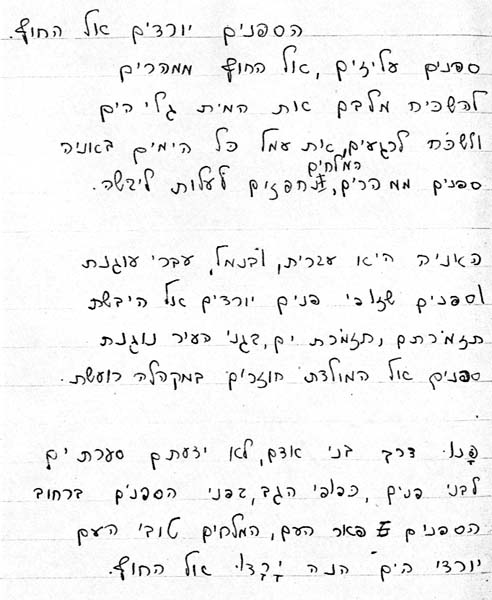 הספנים יורדים אל החוף.
ספנים עליזים, אל החוף ממהרים
להשכיח מלבם את המית גלי הים
ולשכח לרגעים, את עמל כל הימים באניה
המלחים
ספנים ממהרים, נחפזים לעלות ליבשה.
האניה היא עברית, ובנמל, עברי עוגנת
וספנים שזופי פנים יורדים אל היבשת
תזמרתם, תזמרת ים, בגני העיר נוגנת
ספנים אל המולדת חוזרים במקהלה רועשת.
פָּנוּ דרך בני אדם, לא ידעתם סערת ים
לבני פנים, כפופי הגב, בפני הספנים ברחוב
הספנים פאר העם, המלחים טובי העם
יורדי הים הנה יָרְדוּ אל החוף.